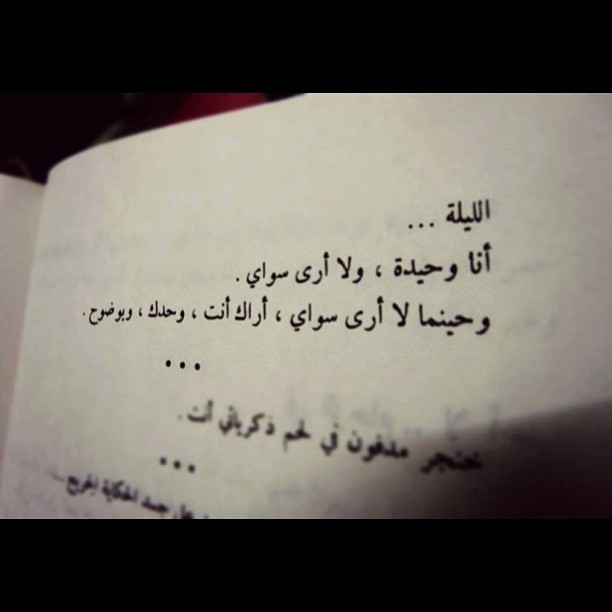 الليلة ...
أنا وحيدة ، ولا أرى سواي .
وحينما لا أرى سواي ، أراك أنت ، وحدك ، وبوضوح .
...
خنجر مدفون في لحم ذكرياتي أنت .
...
جسد الحكاية الجريح ...